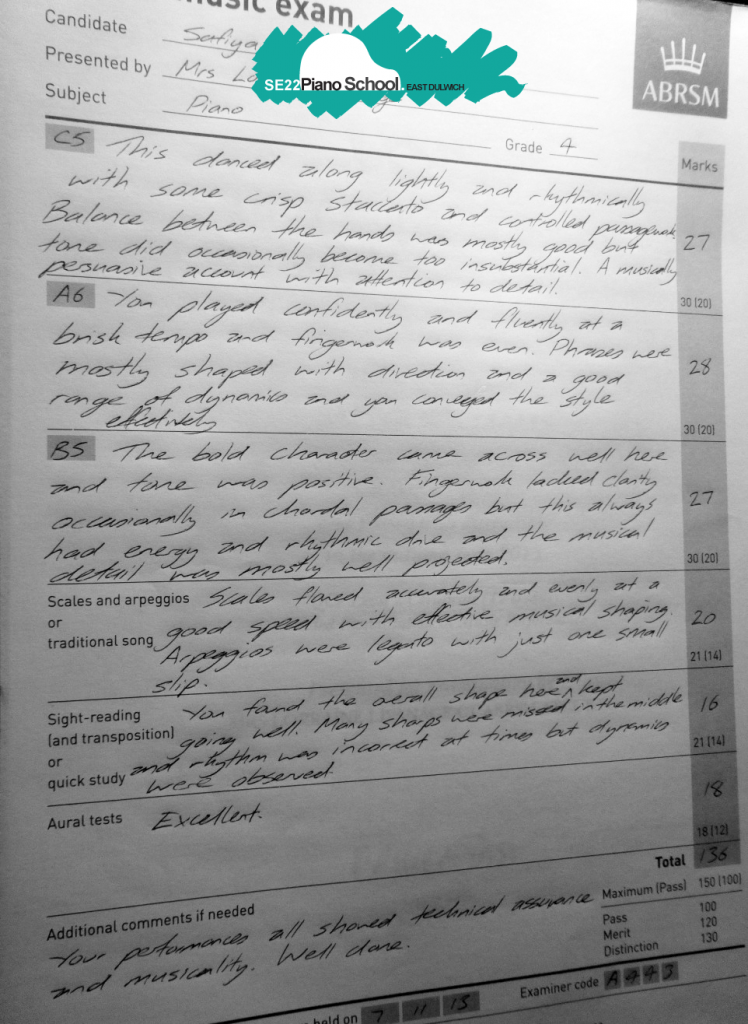 music exam
Candidate Safiya
Presented by Mrs
Subject Piano
SE22 Piano School. EAST DULWICH
ABRSM
Grade 4
Marks
C5 This danced along lightly and rhythmically
with some crisp staccato and controlled passagework.
Balance between the hands was mostly good but
tone did occasionally become too insubstantial. A musically
persuasive account with attention to detail.
27
30 (20)
A6 You played confidently and fluently at a
brisk tempo and fingerwork was even. Phrases were
mostly shaped with direction and a good
range of dynamics and you conveyed the style
effectively
28
30 (20)
B5 The bold character came across well here
and tone was positive. Fingerwork lacked clarity
occasionally in chordal passages but this always
had energy and rhythmic drive and the musical
detail was mostly well projected.
27
30 (20)
Scales and arpeggios
or
traditional song
Scales flowed accurately and evenly at a
good speed with effective musical shaping.
Arpeggios were legato with just one small
slip.
20
21 (14)
Sight-reading
(and transposition)
or
quick study
You found the overall shape here and kept
going well. Many sharps were missed in the middle
and rhythm was incorrect at times but dynamics
were observed.
16
21 (14)
Aural tests Excellent.
18
18 (12)
Total 136
Maximum (Pass) 150 (100)
Pass 100
Merit 120
Distinction 130
Additional comments if needed
Your performances all showed technical assurance
and musicality. Well done.
held on 7 11 15
Examiner code A 4 4 5